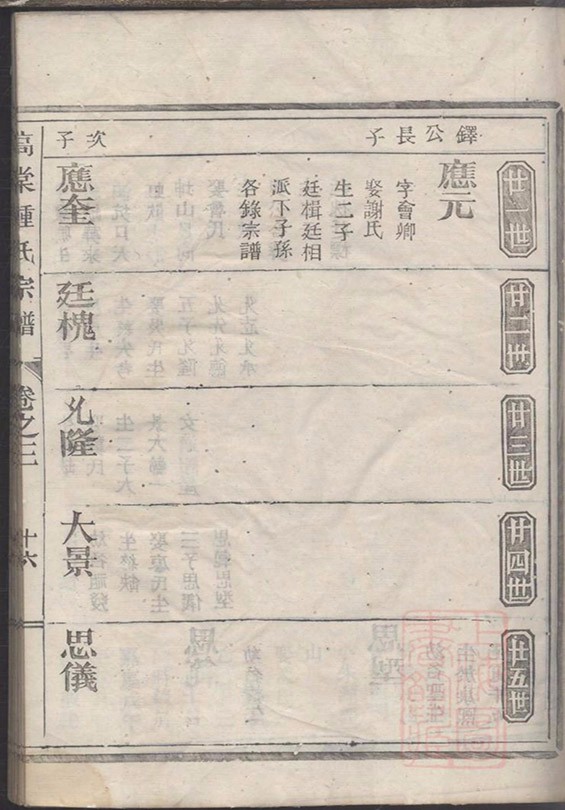 鐸公長子
廿一世
應元
字會卿
娶謝氏
生二子
廷楫廷相
派下子孫
各錄宗譜
次子
應奎
廿二世
廷槐
廿三世
允隆
廿四世
大景
廿五世
思儀
鍾氏宗譜
卷之三
十六